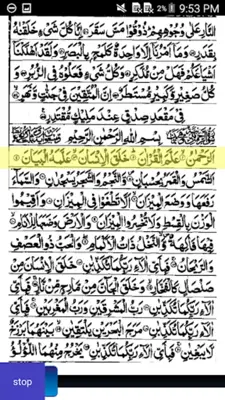 9:53 PM
النَّارِ عَلٰى وُجُوْهِهِمْ ذُوْقُوْا مَسَّ سَقَرَ ۝ اِنَّا كُلَّ شَيْءٍ خَلَقْنٰهُ
بِقَدَرٍ ۝ وَمَا اَمْرُنَا اِلَّا وَاحِدَةٌ كَلَمْحٍ بِالْبَصَرِ ۝ وَلَقَدْ اَهْلَكْنَا
اَشْيَاعَكُمْ فَهَلْ مِنْ مُّدَّكِرٍ ۝ وَكُلُّ شَيْءٍ فَعَلُوْهُ فِي الزُّبُرِ ۝ وَ
كُلُّ صَغِيْرٍ وَّكَبِيْرٍ مُّسْتَطَرٌ ۝ اِنَّ الْمُتَّقِيْنَ فِيْ جَنّٰتٍ وَّنَهَرٍ ۝
فِيْ مَقْعَدِ صِدْقٍ عِنْدَ مَلِيْكٍ مُّقْتَدِرٍ ۝
بِسْمِ اللّٰهِ الرَّحْمٰنِ الرَّحِيْمِ
اَلرَّحْمٰنُ ۝ عَلَّمَ الْقُرْاٰنَ ۝ خَلَقَ الْاِنْسَانَ ۝ عَلَّمَهُ الْبَيَانَ ۝
اَلشَّمْسُ وَالْقَمَرُ بِحُسْبَانٍ ۝ وَّالنَّجْمُ وَالشَّجَرُ يَسْجُدٰنِ ۝ وَالسَّمَآءَ
رَفَعَهَا وَوَضَعَ الْمِيْزَانَ ۝ اَلَّا تَطْغَوْا فِي الْمِيْزَانِ ۝ وَاَقِيْمُوا
الْوَزْنَ بِالْقِسْطِ وَلَا تُخْسِرُوا الْمِيْزَانَ ۝ وَالْاَرْضَ وَضَعَهَا لِلْاَنَامِ ۝
فِيْهَا فَاكِهَةٌ وَّالنَّخْلُ ذَاتُ الْاَكْمَامِ ۝ وَالْحَبُّ ذُو الْعَصْفِ
وَالرَّيْحَانُ ۝ فَبِاَيِّ اٰلَآءِ رَبِّكُمَا تُكَذِّبٰنِ ۝ خَلَقَ الْاِنْسَانَ مِنْ
صَلْصَالٍ كَالْفَخَّارِ ۝ وَخَلَقَ الْجَآنَّ مِنْ مَّارِجٍ مِّنْ نَّارٍ ۝ فَبِاَيِّ
اٰلَآءِ رَبِّكُمَا تُكَذِّبٰنِ ۝ رَبُّ الْمَشْرِقَيْنِ وَرَبُّ الْمَغْرِبَيْنِ ۝ فَبِاَيِّ
اٰلَآءِ رَبِّكُمَا تُكَذِّبٰنِ ۝ مَرَجَ الْبَحْرَيْنِ يَلْتَقِيٰنِ ۝ بَيْنَهُمَا بَرْزَخٌ
لَّا يَبْغِيٰنِ ۝ فَبِاَيِّ اٰلَآءِ رَبِّكُمَا تُكَذِّبٰنِ ۝ يَخْرُجُ مِنْهُمَا اللُّؤْلُؤُ
stop